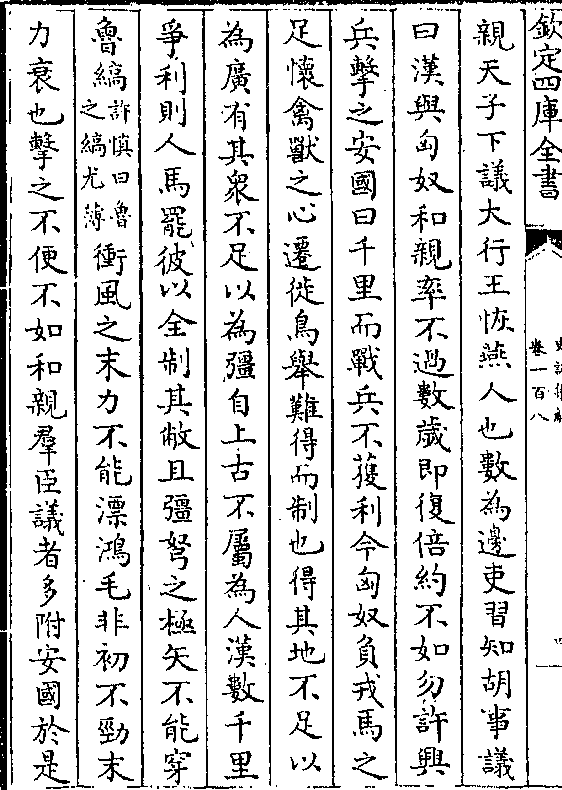 欽定四庫全書
卷一百八
親天子下議大行王恢燕人也數為邊吏習知胡事議
曰漢與匈奴和親率不過數歲即復倍約不如勿許興
兵擊之安國曰千里而戰兵不獲利今匈奴負戎馬之
足懷禽獸之心遷徙鳥舉難得而制也得其地不足以
為廣有其衆不足以為彊自上古不屬為人漢數千里
爭利則人馬罷彼以全制其敝且彊弩之極矢不能穿
魯縞許慎曰魯之縞尤薄衝風之末力不能漂鴻毛非初不勁末
力衰也擊之不便不如和親羣臣議者多附安國於是